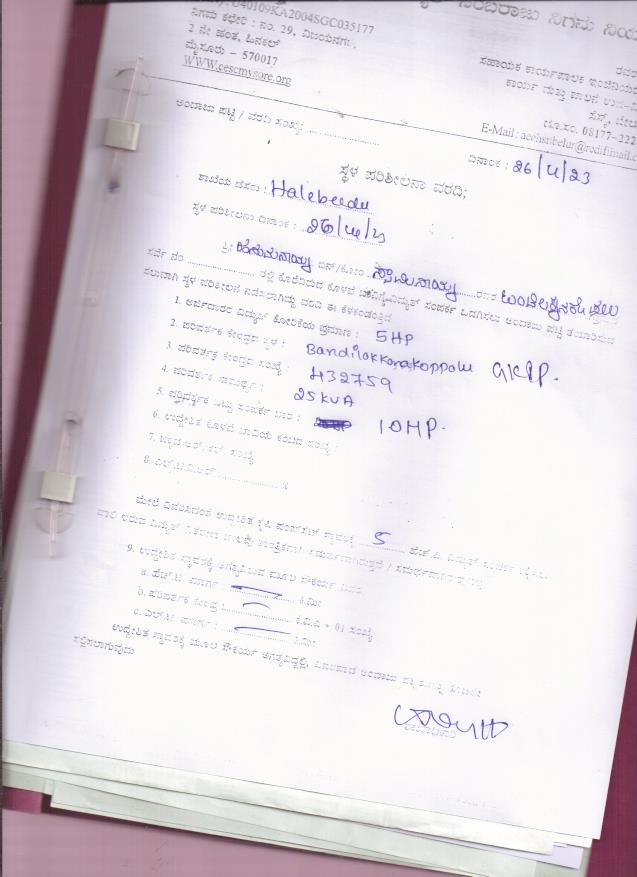 U40109KA2004SGC035177
ನಿಗಮ ಕಛೇರಿ : ನಂ. 29, ವಿಜಯನಗರ,
2 ನೇ ಹಂತ, ಹಿನಕಲ್
ಮೈಸೂರು – 570017
WWW.cescmysore.org
ಸಹಾಯಕ ಕಾರ್ಯಪಾಲಕ ಇಂಜಿನಿಯರ
ಕಾರ್ಯ ಮತ್ತು ಪಾಲನೆ ಉಪ-
ದೂ.ಸಂ. 08177-222
E-Mail : aeehsnbelur@rediffmail.c
ಅಂದಾಜು ಪಟ್ಟಿ / ವರದಿ ಸಂಖ್ಯೆ: ....................
ದಿನಾಂಕ : 26/4/23
ಸ್ಥಳ ಪರಿಶೀಲನಾ ವರದಿ;
ಶಾಖೆಯ ಹೆಸರು : Halebeedu
ಸ್ಥಳ ಪರಿಶೀಲನಾ ದಿನಾಂಕ : 26/4/23
ಶ್ರೀ ಬಿನ್/ಕೋಂ. ಸ್ವಾಮಿನಾಯ್ಕ ರವರ
ಸರ್ವೆ ನಂ .................... ರಲ್ಲಿ ಕೊರೆದಿರುವ ಕೊಳವೆ ಬಾವಿಗೆ ವಿದ್ಯುತ್ ಸಂಪರ್ಕ ಒದಗಿಸಲು ಅಂದಾಜು ಪಟ್ಟಿ ತಯಾರಿಸುವ
ಸಲುವಾಗಿ ಸ್ಥಳ ಪರಿಶೀಲನೆ ನಡೆಸಲಾಗಿದ್ದು ವರದಿ ಈ ಕೆಳಕಂಡಂತಿದೆ.
1. ಅರ್ಜಿದಾರರ ವಿದ್ಯುತ್ ಕೋರಿಕೆಯ ಪ್ರಮಾಣ : 5HP
2. ಪರಿವರ್ತಕ ಕೇಂದ್ರದ ಸ್ಥಳ : Bandilakkanakoppalu
3. ಪರಿವರ್ತಕ ಕೇಂದ್ರದ ಸಂಖ್ಯೆ : 432759
4. ಪರಿವರ್ತಕ ಸಾಮರ್ಥ್ಯ : 25KVA
5. ಪರಿವರ್ತಕ ಒಟ್ಟು ಸಂಪರ್ಕ ಭಾರ : 10HP.
6. ಉದ್ದೇಶಿತ ಕೊಳವೆ ಬಾವಿಯ ಕಂಬದ ಸಂಖ್ಯೆ :
7. ಪಕ್ಕದ ಆರ್.ಆರ್. ಸಂಖ್ಯೆ
8. ಎಲ್.ಟಿ.ವಿ.ಆರ್ .................... %
ಮೇಲೆ ವಿವರಿಸಿದಂತೆ ಉದ್ದೇಶಿತ ಕೃಷಿ ಪಂಪ್‌ಸೆಟ್ ಸ್ಥಾವರಕ್ಕೆ 5 ಹೆಚ್.ಪಿ. ವಿದ್ಯುತ್ ಸಂಪರ್ಕ
9. ಉದ್ದೇಶಿತ ಸ್ಥಾವರಕ್ಕೆ ಅಗತ್ಯವಿರುವ ಮೂಲ ಸೌಕರ್ಯ ವಿವರ.
a. ಹೆಚ್.ಟಿ. ಮಾರ್ಗ : .................... ಕಿ.ಮೀ
b. ಪರಿವರ್ತಕ ಕೇಂದ್ರ : .................... ಕೆ.ವಿ.ಎ * 01 ಸಂಖ್ಯೆ
c. ಎಲ್.ಟಿ. ಮಾರ್ಗ : .................... ಕಿ.ಮೀ.
ಉದ್ದೇಶಿತ ಸ್ಥಾವರಕ್ಕೆ ಮೂಲ ಸೌಕರ್ಯ ಅಗತ್ಯವಿದ್ದಲ್ಲಿ, ವಿವರವಾದ ಅಂದಾಜು
ಸಲ್ಲಿಸಲಾಗುವುದು